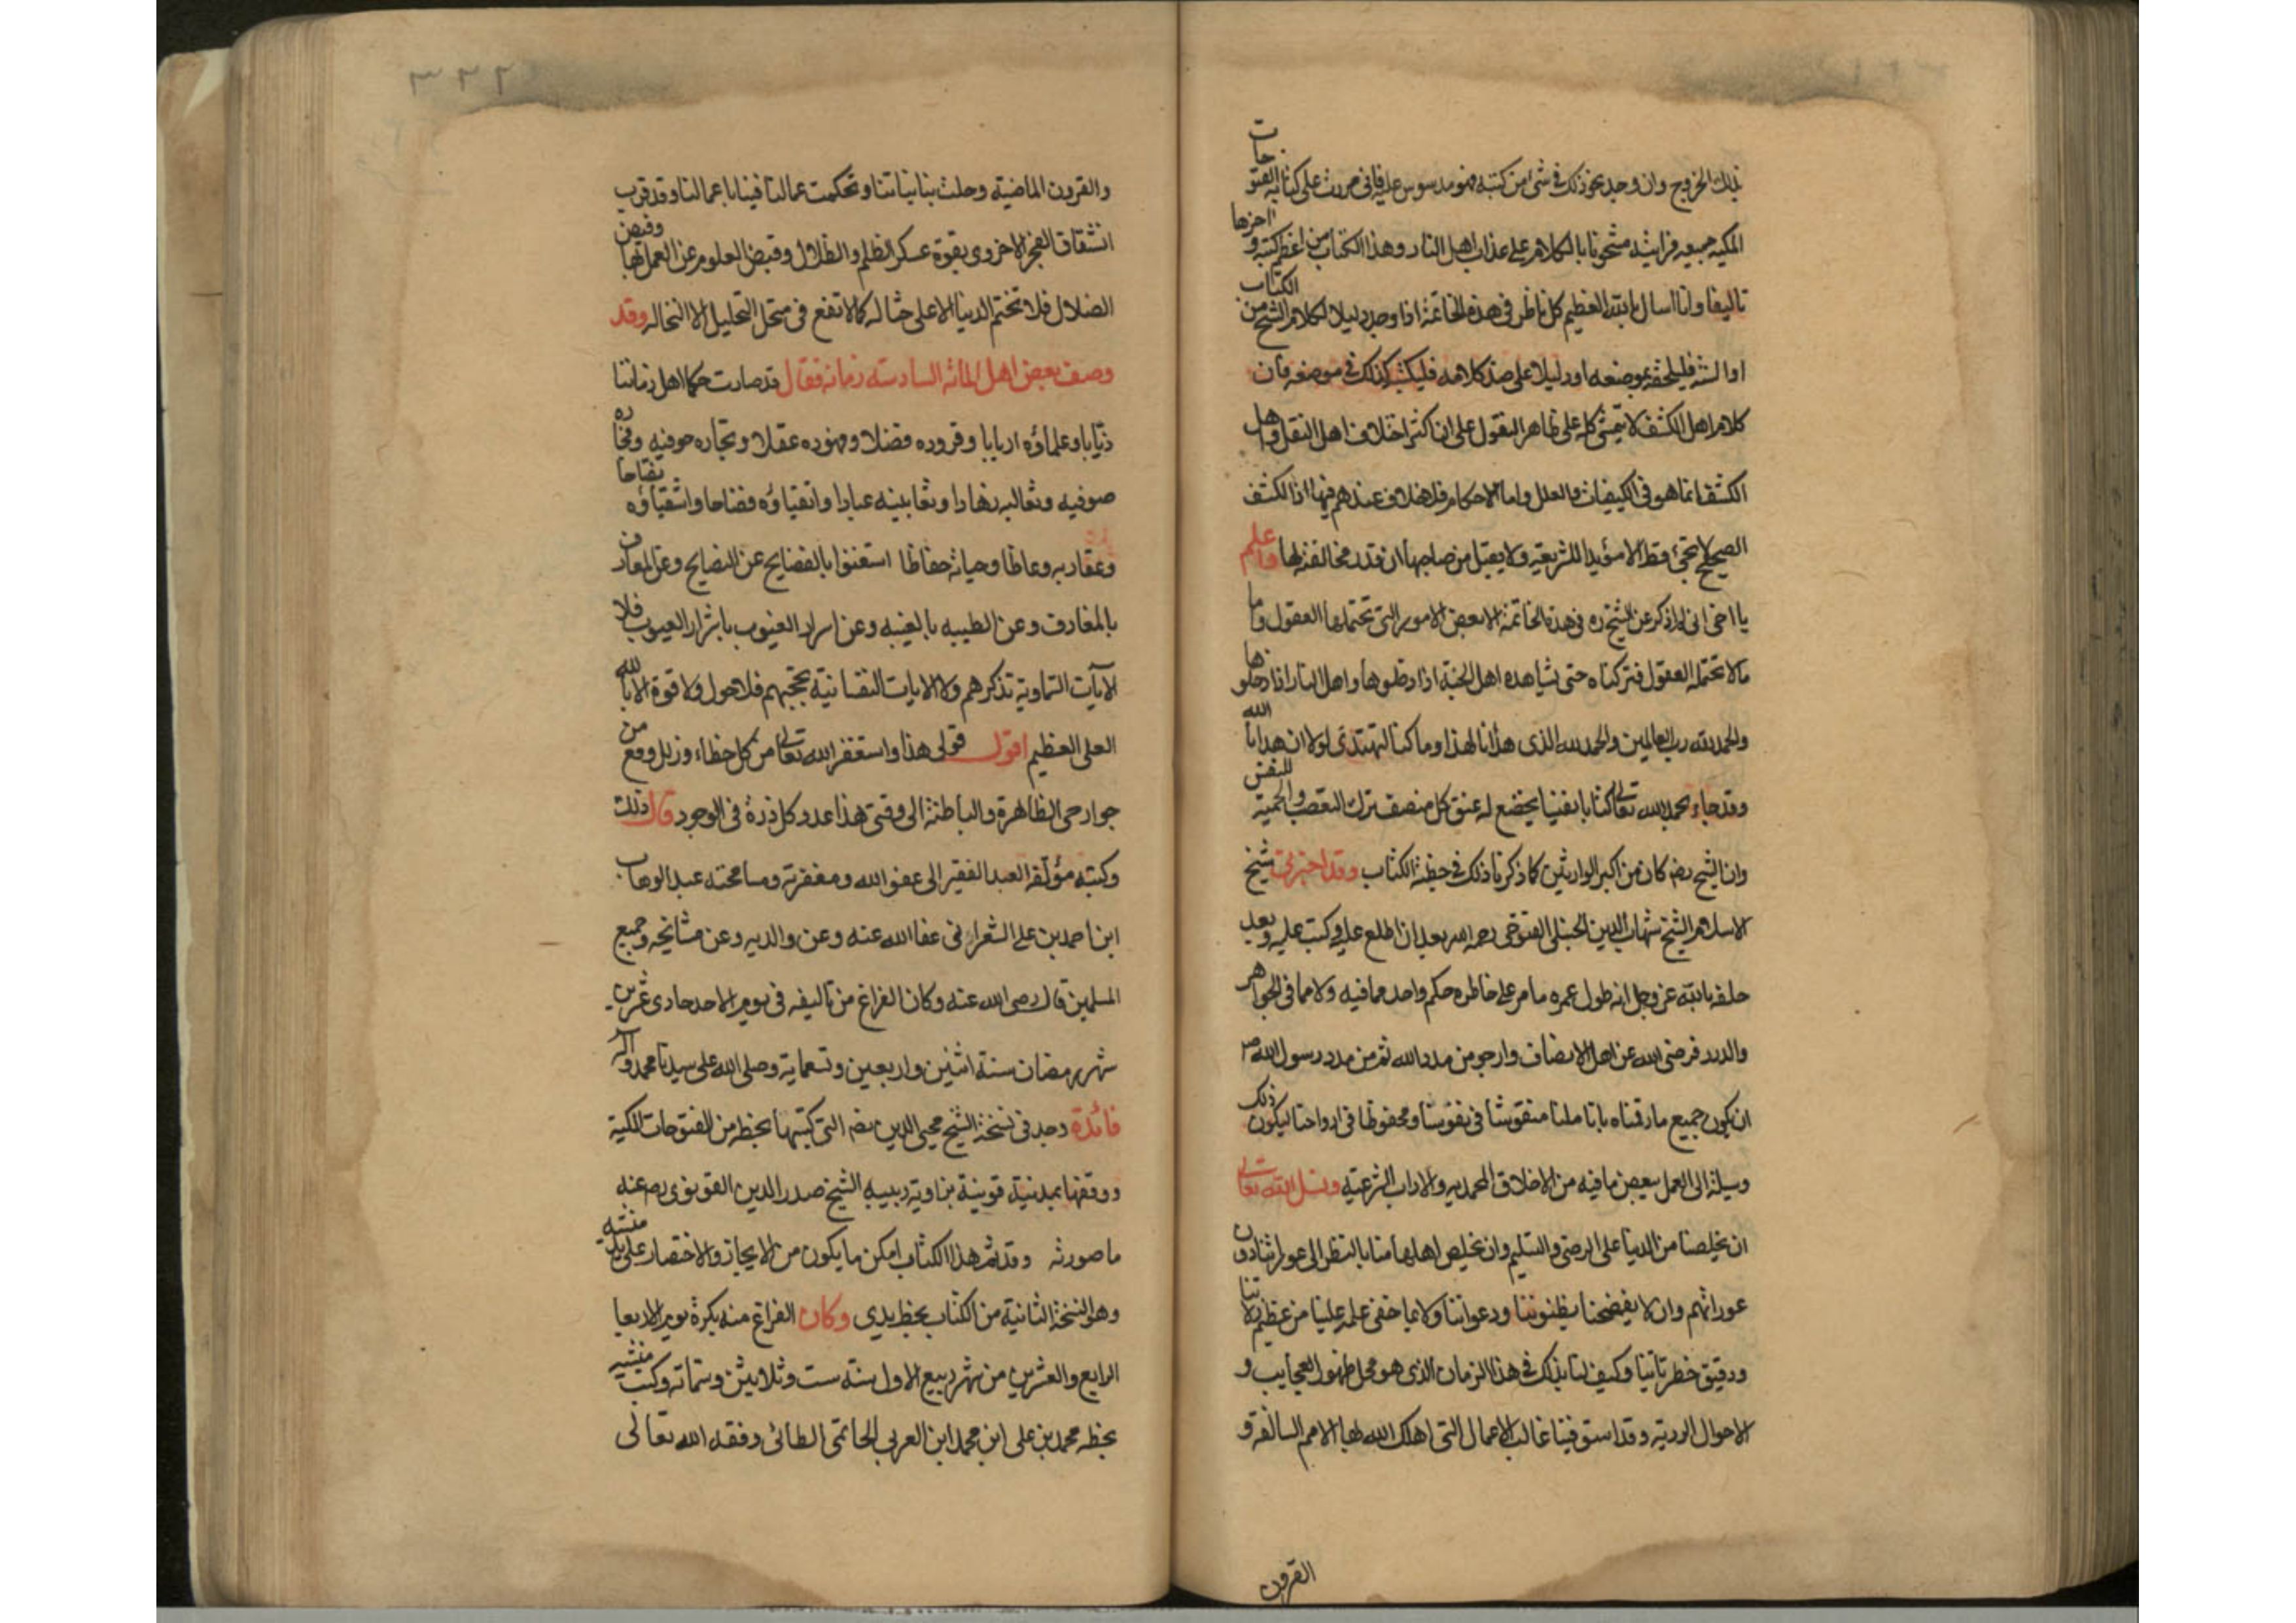 بذلك الخروج وان وجد نحو ذلك في شئ من كتبه فهو مدسوس عليه فاني مررت على كتابه الفتوحات
المكيه جميعه فرايته مشحونا بالكلام على عذاب اهل النار وهذا الكتاب من اعظم كتبه و اخرها
تاليفا وانا اسال بالله العظيم كل ناظر في هذه الخاتمة اذا وجد دليلا لكلام الشيخ من الكتاب
او السنة فليلحقه بموضعه او دليلا على ضد كلامه فليكتب كذلك في موضعه فان
كلام اهل الكشف لا يتمشى كله على ظاهر النقول على ان اكثر اختلاف اهل النقل واهل
الكشف انما هو في الكيفيات والعلل واما الاحكام فلا خلاف عندهم فيها اذ الكشف
الصحيح لا يجئ قط الا مؤيدا للشريعة ولا يقبل من صاحبها ان قدر مخالفته لها واعلم
يا اخي اني لم اذكر عن الشيخ ره في هذه الخاتمة الا بعض الامور التي تحتملها العقول واما
مالا تحتمله العقول فتركناه حتى يشاهده اهل الجنة اذا دخلوها واهل النار اذا دخلوها
والحمد لله رب العالمين والحمد لله الذي هدانا لهذا وما كنا لنهتدي لولا ان هدانا الله
وقد جاء بحمد الله تعالى كتابا نفيسا يخضع له عنق كل منصف ترك التعصب والحمية للنفس
وان الشيخ رضه كان من اكبر الوارثين كما ذكرنا ذلك في خطبة الكتاب وقد اخبرني شيخ
الاسلام الشيخ شهاب الدين الحنبلي الفتوحي رحمه الله بعد ان اطلع عليه وكتب عليه وبعد
حلفه بالله عز وجل انه طول عمره ما مر على خاطره حكم واحد مما فيه ولا مما في الجواهر
والدرر فرضي الله عن اهل الانصاف وارجو من مدد الله ثم من مدد رسول الله ص
ان يكون جميع ما رقمناه باناملنا منقوشا في نفوسنا ومحفوظا في ارواحنا ليكون ذلك
وسيلة الى العمل ببعض ما فيه من الاخلاق المحمديه والاداب الشرعية ونسل الله تعالى
ان يخلصنا من الدنيا على الرضى والتسليم وان يخلص اهلها منا بالنظر الى عوراتنا دون
عوراتهم وان لا يفضحنا بظنوننا ودعواتنا ولا بما خفي علمه علينا من عظيم زلاتنا
ودقيق خطراتنا وكيف لنا بذلك في هذا الزمان الذي هو محل ظهور العجايب و
الاحوال الردية وقد استوفينا غالب الاعمال التي اهلك الله لها الامم السالفة و
القرون
٣٢٢
والقرون الماضية وحلت بنا نياتنا وتحكمت عمالنا فينا باعمالنا وقد قرب
انشقاق الفجر الاخروي بقوة عسكر الظلم والظلال وقبض العلوم عن العمل بها وقبض
الضلال فلا تختم الدنيا الا على حثاله كما لا تقع في منخل التحليل الا النخاله وقد
وصف بعض اهل المائه السادسه زمانه فقال قد صارت حكما اهل زماننا
ذئابا وعلماؤه اربابا وقروده فضلا وفهوده عقلا وتجاره حوفيه وفخاره
صوفيه وثعالبه زهادا وثعابينه عبادا واتقياؤه فضاحا واشقياؤه نفتاحا
وعقاربه وعاظا وحياته حفاظا استغنوا بالفضايح عن النصايح وعن المعارف
بالمغارف وعن الطيبه بالغيبه وعن اسرار الغيوب باشرار العيوب فلا
الآيات السماوية تذكرهم ولا الايات النفسانية تحجبهم فلا حول ولا قوة الا بالله
العلي العظيم اقول قولي هذا واستغفر الله تعالى من كل خطاء وزلل وقع من
جوارحي الظاهرة والباطنة الى وقتي هذا عدد كل ذرة في الوجود قال ذلك
وكتبه مؤلفه العبد الفقير الى عفو الله ومغفرته ومسامحته عبد الوهاب
ابن احمد بن علي الشعراني عفا الله عنه وعن والديه وعن مشائخه وجميع
المسلمين قال رضي الله عنه وكان الفراغ من تاليفه في يوم الاحد حادي عشرين
شهر رمضان سنة اثنين واربعين وتسعماية وصلى الله على سيدنا محمد وآله
فائدة وجد في نسخة الشيخ محيي الدين رضه التي كتبها بخطه من الفتوحات المكية
ووقفها بمدينة قونية بزاوية ربيبه الشيخ صدر الدين القونوي رضعنه
ما صورته وقد تم هذا الكتاب امكن ما يكون من الايجاز والاختصار على يدي منشيه
وهو النسخة الثانية من الكتاب بخط يدي وكان الفراغ منه بكرة يوم الاربعا
الرابع والعشرين من شهر ربيع الاول سنة ست وثلاثين وستماته وكتب منشيه
بخطه محمد بن علي ابن محمد ابن العربي الحاتمي الطائي وفقه الله تعالى